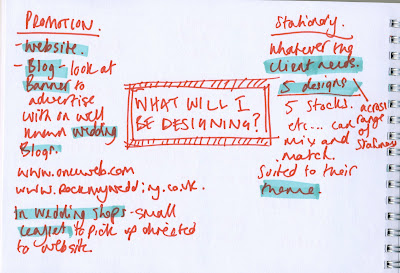 PROMOTION.
- website.
- Blog - look at
Banner to
advertise
with on well
known wedding
Blogs.
www.onewed.com
www.rockmywedding.co.uk.
In wedding shops - small
leaflet, to pick up directed
to website.
WHAT WILL I
BE DESIGNING?
Stationary.
whatever the
client needs.
5 designs
5 stocks.
etc... can
mix and
match.
Suited to their
theme.
across
range
of
Stationary